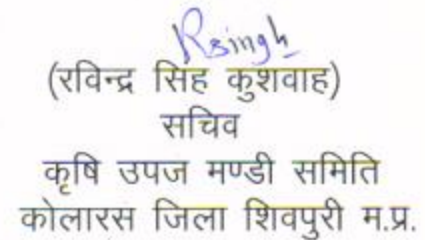 Rsingh
(रविन्द्र सिंह कुशवाह)
सचिव
कृषि उपज मण्डी समिति
कोलारस जिला शिवपुरी म.प्र.